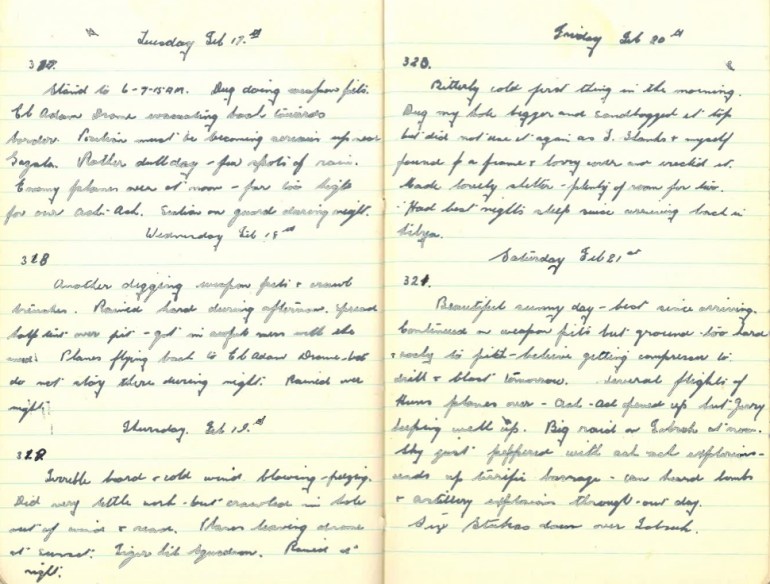 Tuesday Feb 17th
317.
Stand to 6-7-15 AM. Dug doing weapon pits.
El Adam Drome evacuating back towards
border. Position must be becoming serious up near
Gazala. Rather dull day - few spots of rain.
Enemy planes over at noon - far too high
for our Ach-Ach. Section on guard during night.
Wednesday Feb 18th
318
Another digging weapon pits + crawl
trenches. Rained hard during afternoon. Spread
half tent over pit - got in awful mess with the
mud. Planes flying back to El Adam Drome - but
do not stay there during night. Rained all
night.
Thursday. Feb 19th
319
Terrible hard + cold wind blowing - freezing.
Did very little work - but crawled in hole
out of wind + read. Planes leaving drome
at sunset. Squadron. Rained at
night.
Friday Feb 20th
320.
Bitterly cold first thing in the morning.
Dug my hole bigger and sandbagged it top
but did not use it again as + myself
found a frame + lorry cover and erected it.
Made lovely shelter - plenty of room for two.
Had best nights sleep since arriving back in
Libya.
Saturday Feb 21st
321.
Beautiful sunny day - best since arriving.
Continued on weapon pits but ground too hard
+ rocky to pick - believe getting compressor to
drill + blast tomorrow. Several flights of
Huns planes over - ach-ach opened up but Jerry
keeping well up. Big raid on Tobruk at noon.
Sky just peppered with ach ach explosions -
sends up terrific barrage - can heard bombs
+ artillery explosions through-out day.
Six Stukas down over Tobruk.